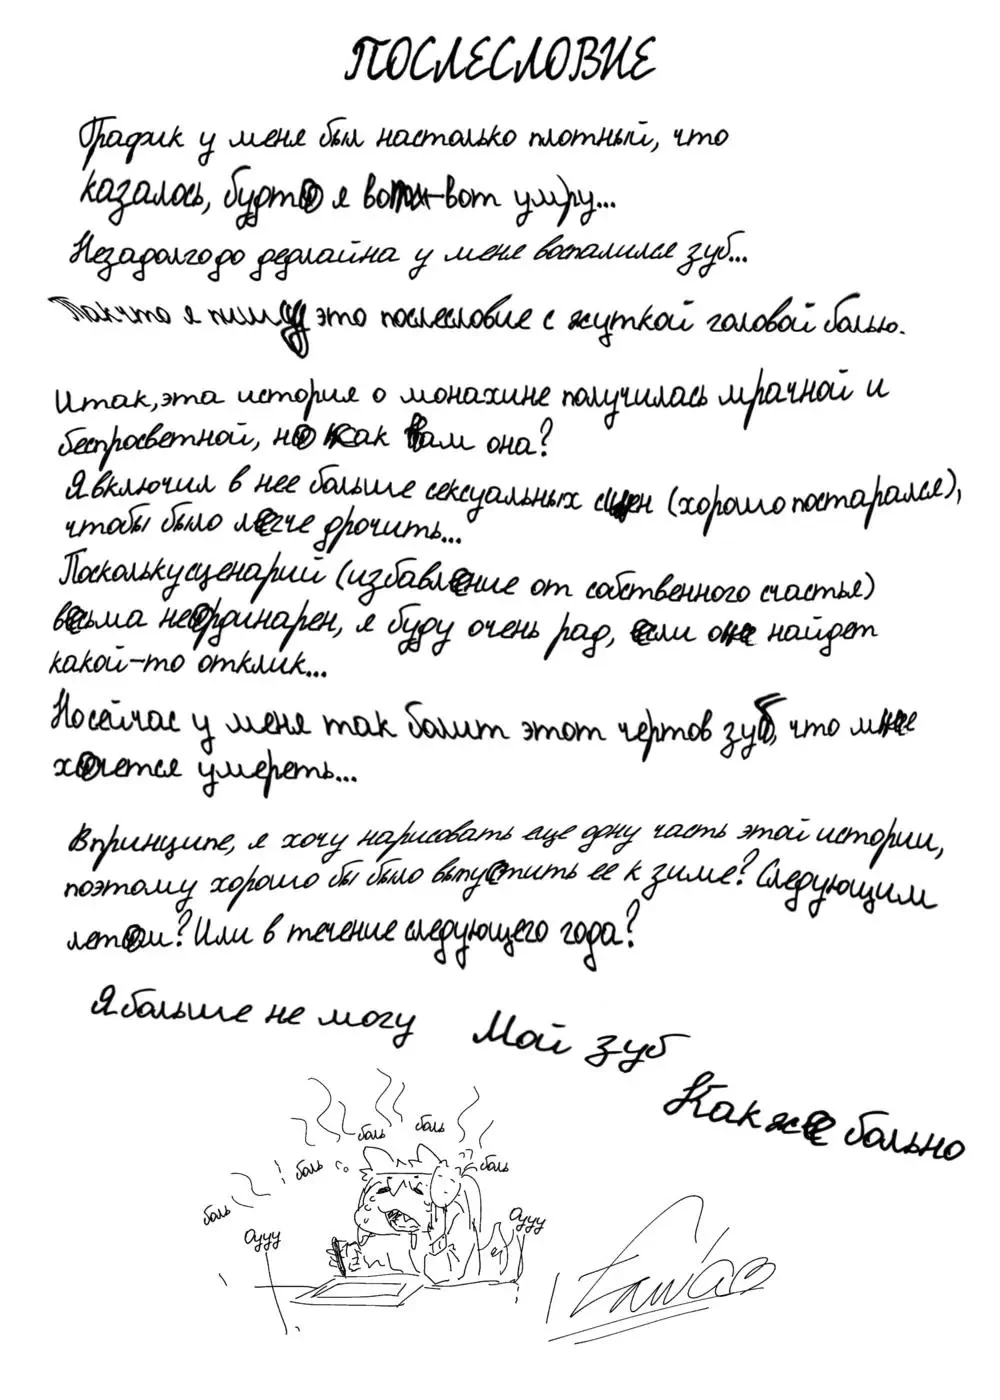 ПОСЛЕСЛОВИЕ
График у меня был настолько плотный, что
казалось, будто я вот-вот умру...
Незадолго до дедлайна у меня воспалился зуб...
Так что я пишу это послесловие с жуткой головой болью.
Итак, эта история о монахине получилась мрачной и
беспросветной, но как вам она?
Я включил в нее больше сексуальных сцен (хорошо постарался),
чтобы было легче дрочить...
Поскольку сценарий (избавление от собственного счастья)
весьма неординарен, я буду очень рад, если она найдет
какой-то отклик...
Но сейчас у меня так болит этот чертов зуб, что мне
хочется умереть...
В принципе, я хочу нарисовать еще одну часть этой истории,
поэтому хорошо бы было выпустить ее к зиме? Следующим
летом? Или в течение следующего года?
Я больше не могу
Мой зуб
Как же больно
боль
боль
боль
боль
боль
Оууу
Оууу